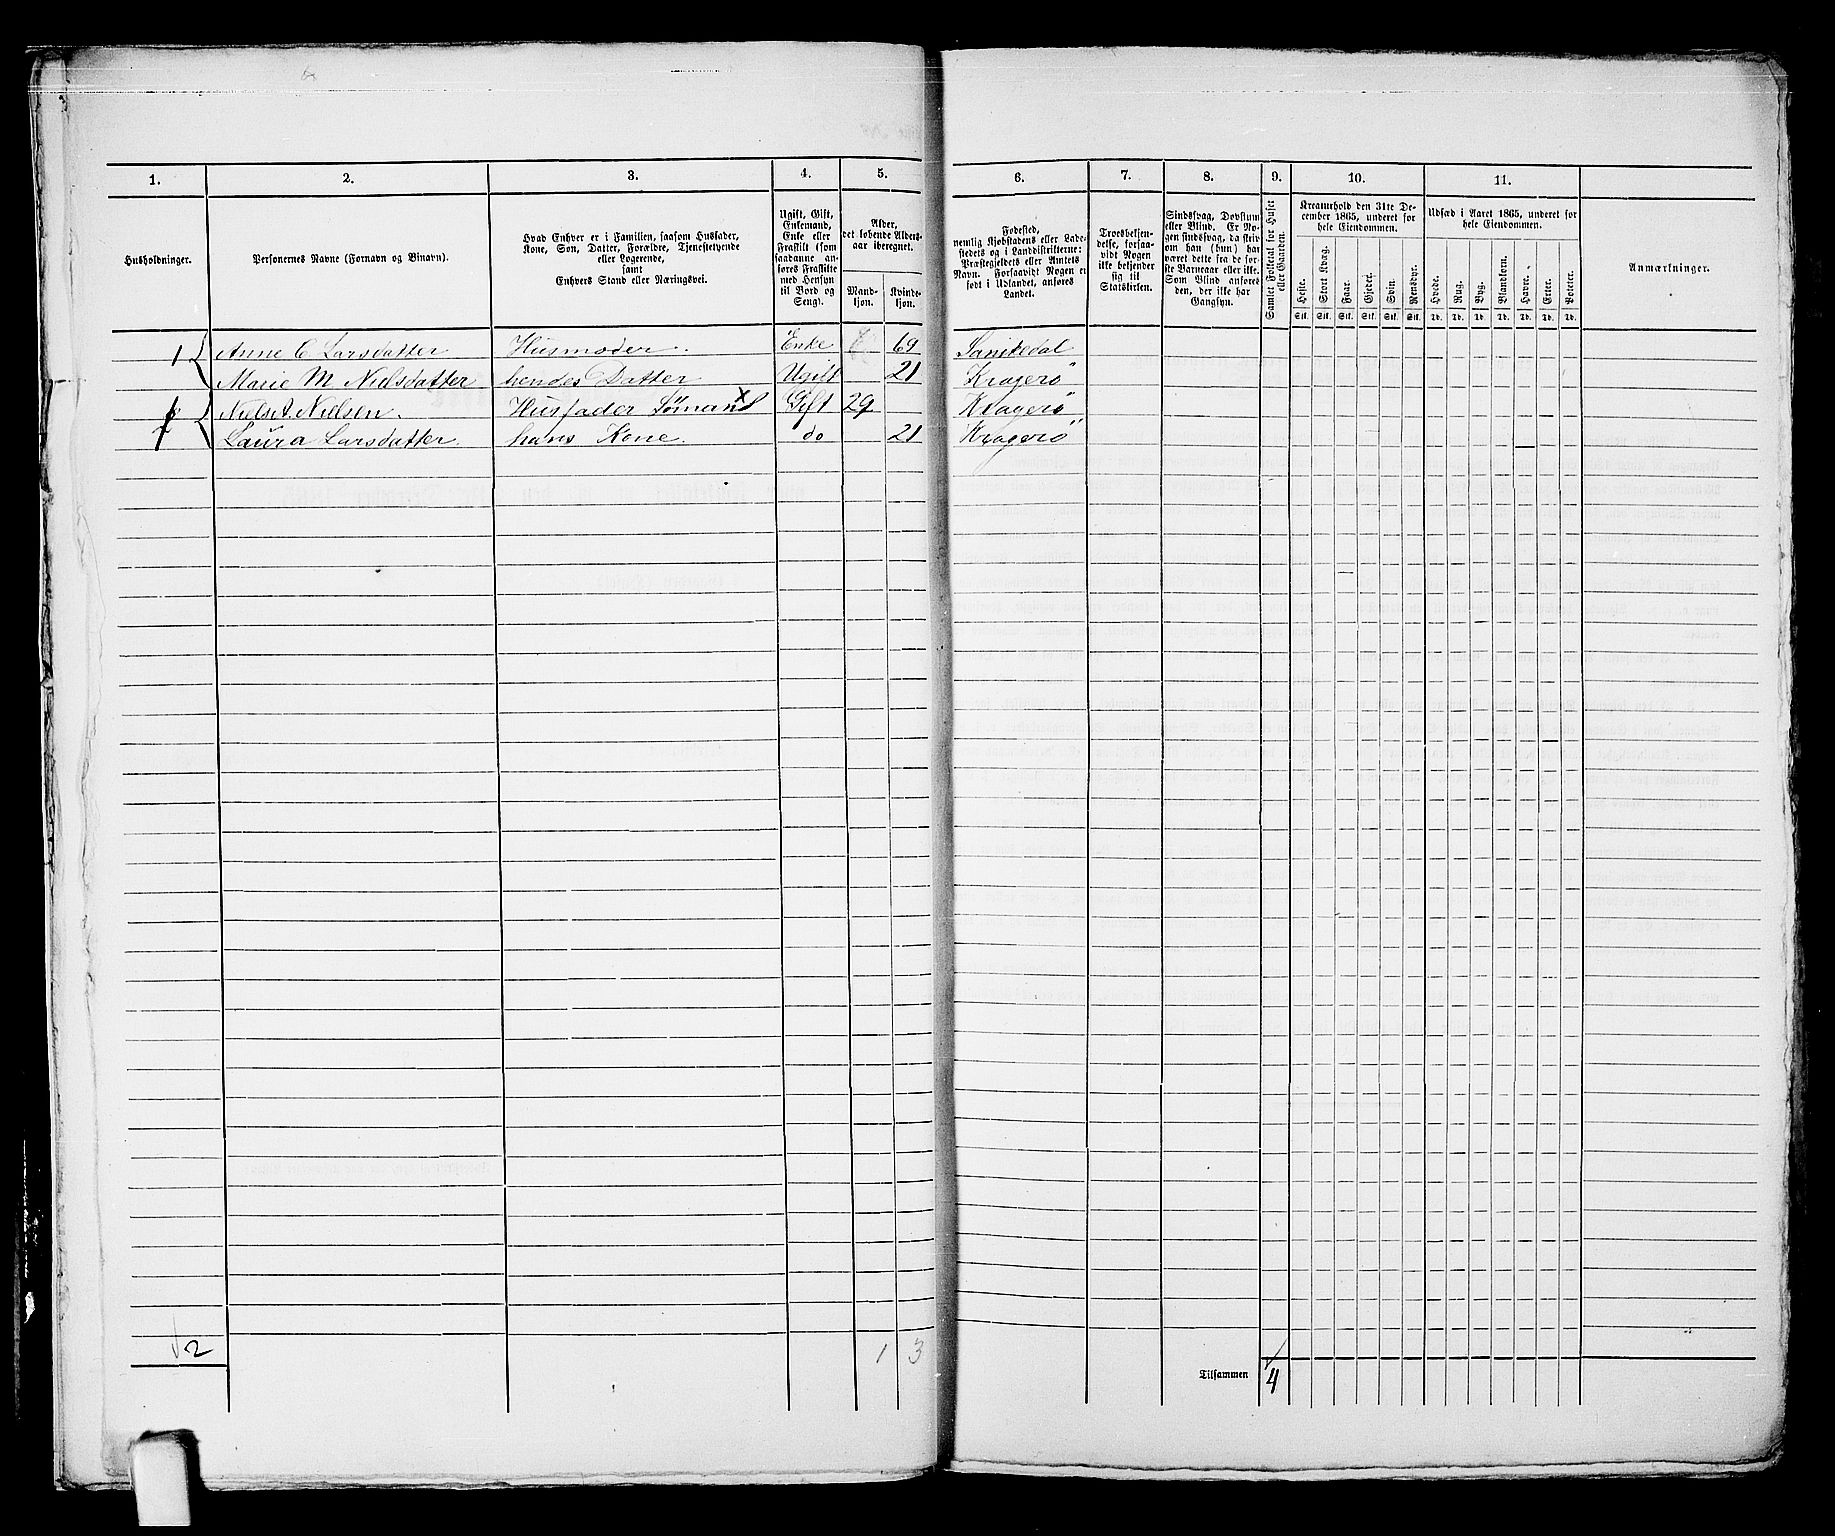 1. 2. 3. 4. 5. 6. 7. 8. 9. 10. 11.
Husholdninger.
Personernes Navne (Fornavn og Binavn).
Hvad Enhver er i Familien, saasom Husfader,
Kone, Søn, Datter, Forældre, Tjenestetyende
eller Logerende,
samt
Enhvers Stand eller Næringsvei.
Ugift, Gift,
Enkemand,
Enke eller
Fraskilt (som
saadanne an-
føres Fraskilte
med Hensyn
til Bord og
Seng).
Alder,
det løbende Alders-
aar iberegnet.
Mand-
kjøn.
Kvinde-
kjøn.
Fødested,
nemlig Kjøbstadens eller Lade-
stedets og i Landdistrikterne:
Præstegjeldets eller Amtets
Navn. Forsaavidt Nogen er
født i Udlandet, anføres
Landet.
Troesbekjen-
delse, forsaa-
vidt Nogen
ikke bekjender
sig til
Statskirken.
Sindssvag, Døvstum
eller Blind. Er No-
gen sindssvag, da skriv
om han (hun) har
været dette fra de før-
ste Barneaar eller ikke.
Som Blind anføres
den, der ikke har
Gangsyn.
Samlet Folketal for Huset
eller Gaarden.
Kreaturhold den 31te De-
cember 1865, underet for
hele Eiendommen.
Heste. Stort Kvæg. Faar. Gjeder. Svin. Rensdyr.
Stk. Stk. Stk. Stk. Stk. Stk.
Udsæd i Aaret 1865, underet for
hele Eiendommen.
Hvede. Rug. Byg. Blandkorn. Havre. Erter. Poteter.
Td. Td. Td. Td. Td. Td. Td.
Anmærkninger.
1 Anne C Larsdatter Husmoder. Enke 69 Sanikedal
Marie M Nielsdatter hendes Datter Ugift 21 Kragerö
Niels A. Nielsen. Husfader Sömand Gift 29 Kragerö
Laura Larsdatter. hans Kone. do 21 Kragerö
2 1 3
Tilsammen 4